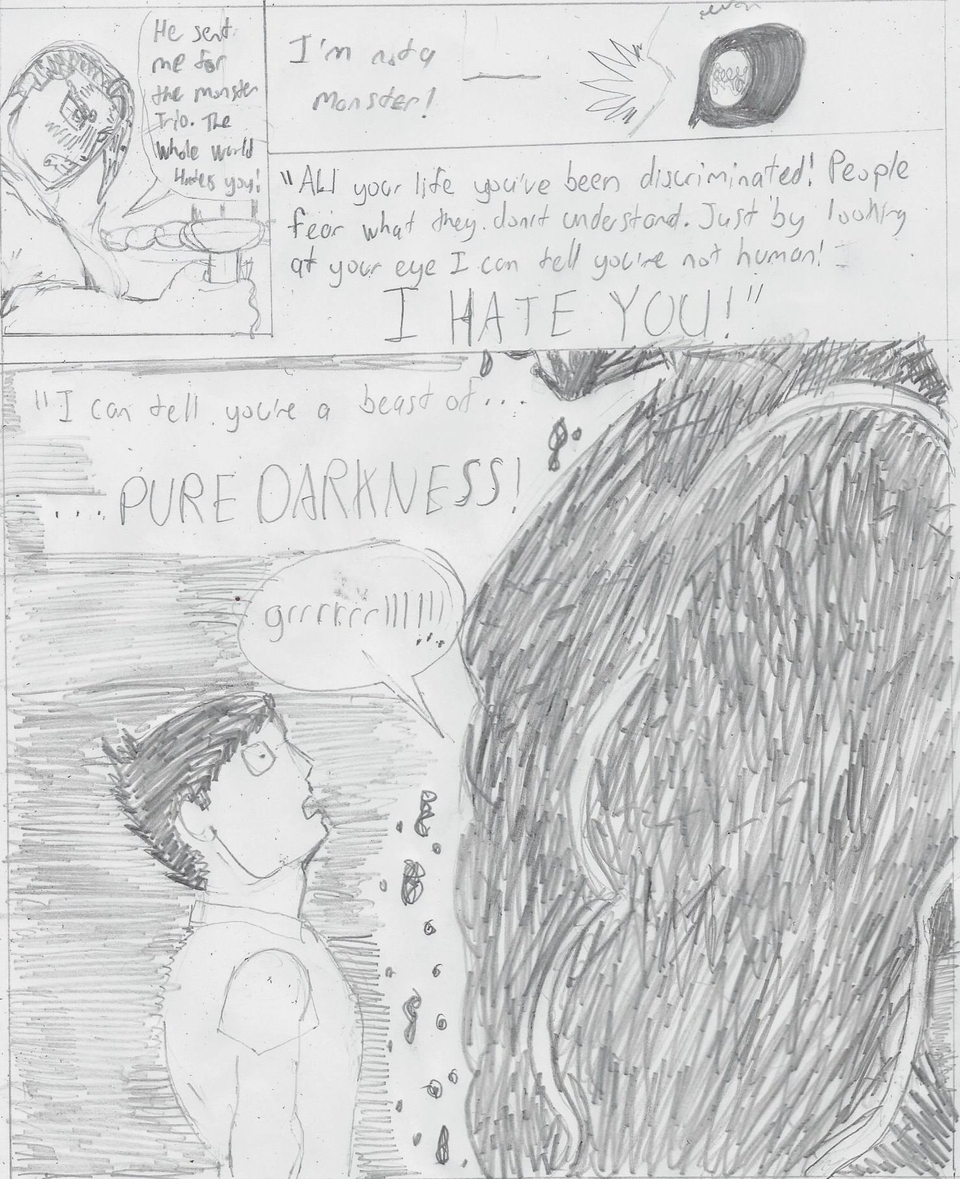 He sent
me for
the monster
Trio. The
Whole world
Hates you!
I'm not a
monster!
"All your life you've been discriminated! People
fear what they don't understand. Just by looking
at your eye I can tell you're not human!
I HATE YOU!"
"I can tell you're a beast of...
....PURE DARKNESS!
grrrrrrllllll!
...